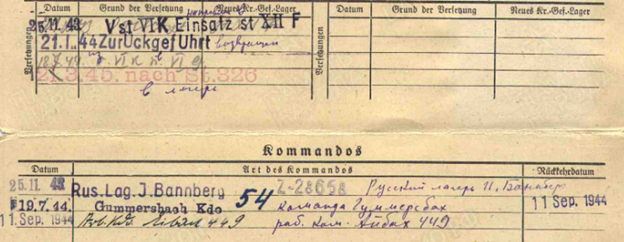 Datum Grund der Versetzung Neues Kr.-Gef.-Lager Datum Grund der Versetzung Neues Kr.-Gef.-Lager
25.11.43 V st VI K Einsatz st XII F
21.1.44 Zurückgeführt возвращен
VI K VI G
2.3.45. nach St.326
в лагерь
Versetzungen
Versetzungen
Kommandos
Datum Art des Kommandos Rückkehrdatum
25.11.43 Rus. Lag. J. Bannberg Русский лагерь
19.7.44. Gummersbach Kdo 54 команда Гуммерсбах 11 Sep. 1944
11 Sep. 1944 449 раб. ком. Айбах 449